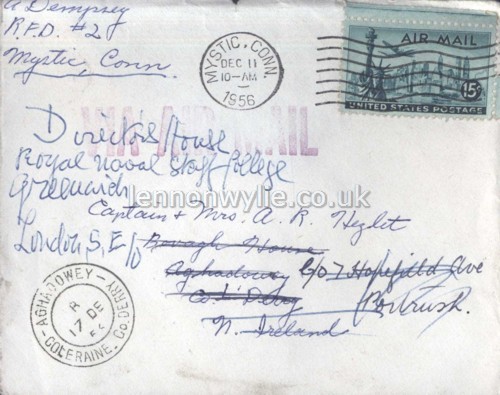 A Dempsey
R.F.D. #2
Mystic, Conn.
MYSTIC, CONN.
DEC 11
10-AM
1956
AIR MAIL
15¢
UNITED STATES POSTAGE
VIA AIR MAIL
Directors House
Royal Naval Staff College
Greenwich
London S.E.10
lennonwylie.co.uk
Captain & Mrs. A. R. Hezlet
Bovagh House
Aghadowey
Co. Derry
C/O 7 Hopefield Ave
Portrush
N. Ireland
AGHADOWEY
R
17 DE
56
COLERAINE, Co. DERRY